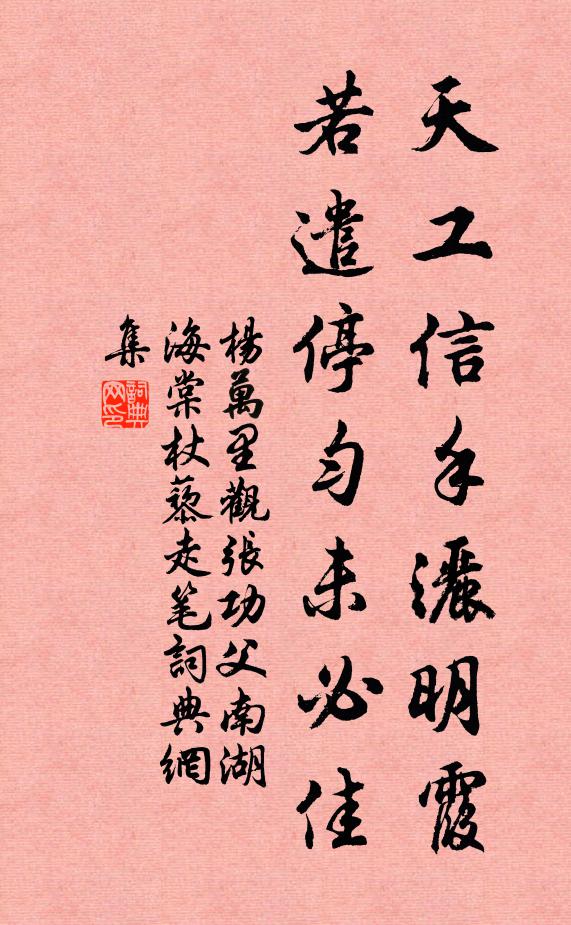 天工信手灑明霞
若遣停勻未必佳
楊萬里觀張功父南湖
海棠杖藜走笔詞典網
集
詞典网印